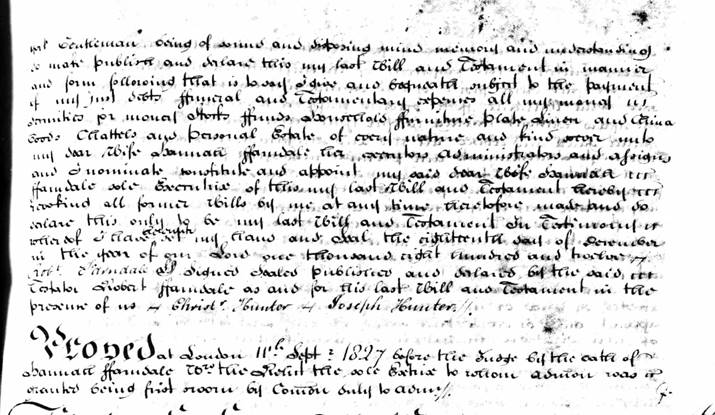 Gentleman being of sound and disposing mind memory and understanding
make publish and declare this my last Will and Testament in manner
and form following that is to say I give and bequeath subject to the payment
of my just debts ffuneral and Testamentary expenses all my moneys
securities for money Stocks ffunds Household ffurniture Plate Linen and China
Goods Chattels and Personal Estate of every nature and kind soever unto
my dear Wife Hannah ffarndale her executors Administrators and assigns
and I nominate constitute and appoint my said dear Wife Hannah
ffarndale sole Executrix of this my last Will and Testament hereby
revoking all former Wills by me at any time heretofore made and do
declare this only to be my last Will and Testament In Testimony
whereof I have hereunto set my hand and seal the eighteenth day of December
in the year of our Lord one thousand eight hundred and twelve
Robt. Farndale LS signed sealed published and declared by the said
Testator Robert ffarndale as and for his last Will and Testament in the
presence of us Christr. Hunter Joseph Hunter
Proved at London 11th Sept: 1827 before the Judge by the oath of
Hannah ffarndale Wid the Relict the sole Extrix to whom admon was
granted being first sworn by Comon duly to admr